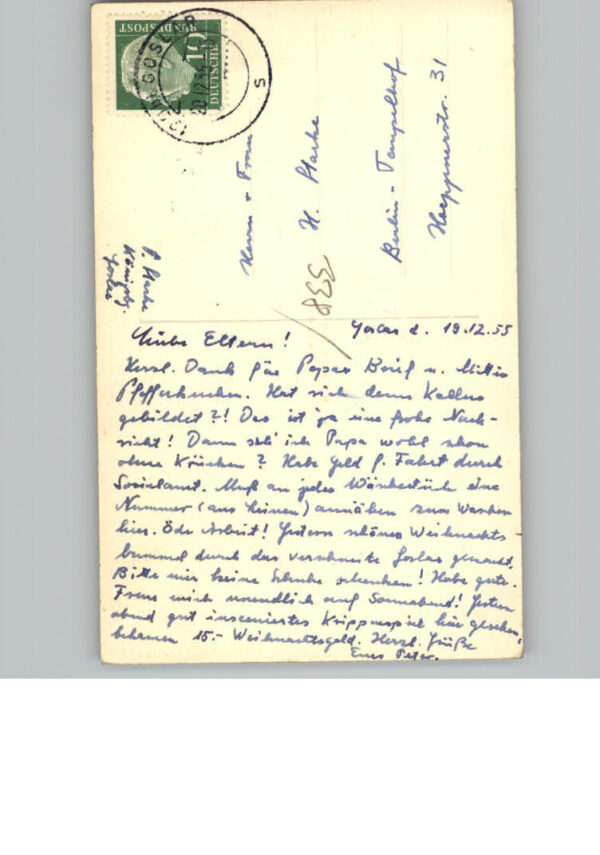 DEUTSCHE
BUNDESPOST
10
GOSLAR
20.12.55
s
Herrn + Frau
H. Starke
Berlin - Tempelhof
Hoeppnerstr. 31
P. Starke
Königsbg.
Goslar
338
Goslar d. 19.12.55
Liebe Eltern!
Herzl. Dank für Papas Brief u. Muttis
Pfefferkuchen. Hat sich denn Kallus
gebildet?! Das ist ja eine frohe Nach-
richt! Dann seh' ich Papa wohl schon
ohne Krücken? Habe Geld f. Fahrt durch
Sozialamt. Muß an jedes Wäschestück eine
Nummer (aus Leinen) annähen zum Waschen
hier. Öde Arbeit! Gestern schönen Weihnachts-
bummel durch das verschneite Goslar gemacht.
Bitte mir keine Schuhe schenken! Habe gute.
Freue mich unendlich auf Sonnabend! Gestern
abend gut inszeniertes Krippenspiel hier gesehen,
bekamen 15.- Weihnachtsgeld. Herzl. Grüße
Euer Peter.